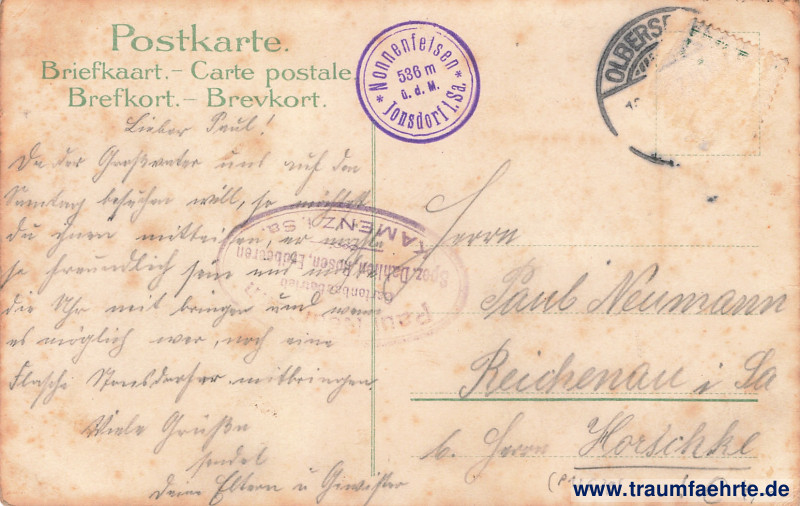 Postkarte.
Briefkaart.- Carte postale.
Brefkort.- Brevkort.
* Nonnenfelsen *
536 m
ü. d. M.
Jonsdorf i. Sa.
OLBERS
Lieber Paul!
Da der Großvater uns auf den
Sonntag besuchen will, so möchtest
du ihnen mitteilen, er möchte
so freundlich sein uns
die Uhr mit bringen und wenn
es möglich wer, noch eine
Flasche Stonsdorfer mitbringen.
Viele Grüße
sendet
Deine Eltern u Gewister
KAMENZ i. Sa.
Spez. Dahlien, Rosen, Erdbeeren
Gartenbaubetrieb
Paul
Herrn
Paul Neumann
Reichenau i Sa
b. Herrn Horschke
www.traumfaehrte.de